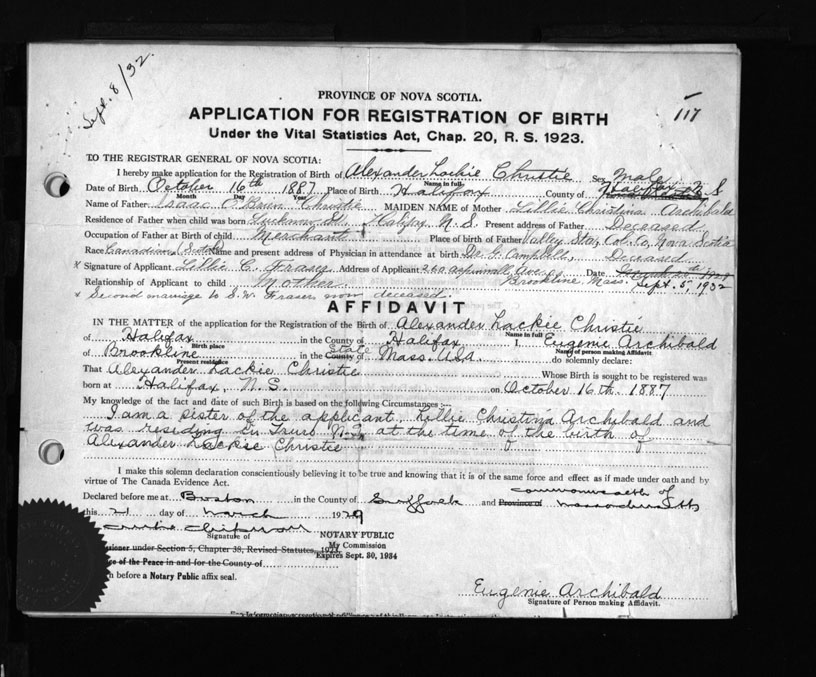 Sept. 8/32.
117
PROVINCE OF NOVA SCOTIA.
APPLICATION FOR REGISTRATION OF BIRTH
Under the Vital Statistics Act, Chap. 20, R. S. 1923.
TO THE REGISTRAR GENERAL OF NOVA SCOTIA:
I hereby make application for the Registration of Birth of Alexander Lackie Christie Sex Male
Name in full
Date of Birth October 16th 1887 Place of Birth Halifax County of Halifax N. S
Month Day Year
Name of Father Isaac Christie MAIDEN NAME of Mother Lillie Christina Archibald
Residence of Father when child was born Lucknow St. Halifax N. S. Present address of Father Deceased
Occupation of Father at Birth of child Merchant Place of birth of Father Valley Sta, Col. Co, Nova Scotia
Race Canadian (Scotch) Name and present address of Physician in attendance at birth Dr. G. Campbell, Deceased
x Signature of Applicant Lillie C. Fraser Address of Applicant 260 Aspinwall Ave. Date
Relationship of Applicant to child Mother Brookline, Mass. Sept. 5, 1932
x Second marriage to S. W. Fraser now deceased.
AFFIDAVIT
IN THE MATTER of the application for the Registration of the Birth of Alexander Lackie Christie
Name in full
of Halifax in the County of Halifax I Eugenie Archibald
Birth place Name of person making Affidavit
of Brookline in the County of State Mass. U.S.A. do solemnly declare:
Present residence
That Alexander Lackie Christie Whose Birth is sought to be registered was
born at Halifax, N. S. on October 16th, 1887
My knowledge of the fact and date of such Birth is based on the following Circumstances :—
I am a sister of the applicant, Lillie Christina Archibald and
was residing in Truro N.S. at the time of the birth of
Alexander Lackie Christie
I make this solemn declaration conscientiously believing it to be true and knowing that it is of the same force and effect as if made under oath and by
virtue of The Canada Evidence Act.
Declared before me at Boston in the County of Suffolk and Province of Commonwealth of Massachusetts
this 21 day of March 1929
Signature of
NOTARY PUBLIC
My Commission
Expires Sept. 30, 1934
under Section 5, Chapter 38, Revised Statutes, 1923
of the Peace in and for the County of
before a Notary Public affix seal.
Eugenie Archibald
Signature of Person making Affidavit.